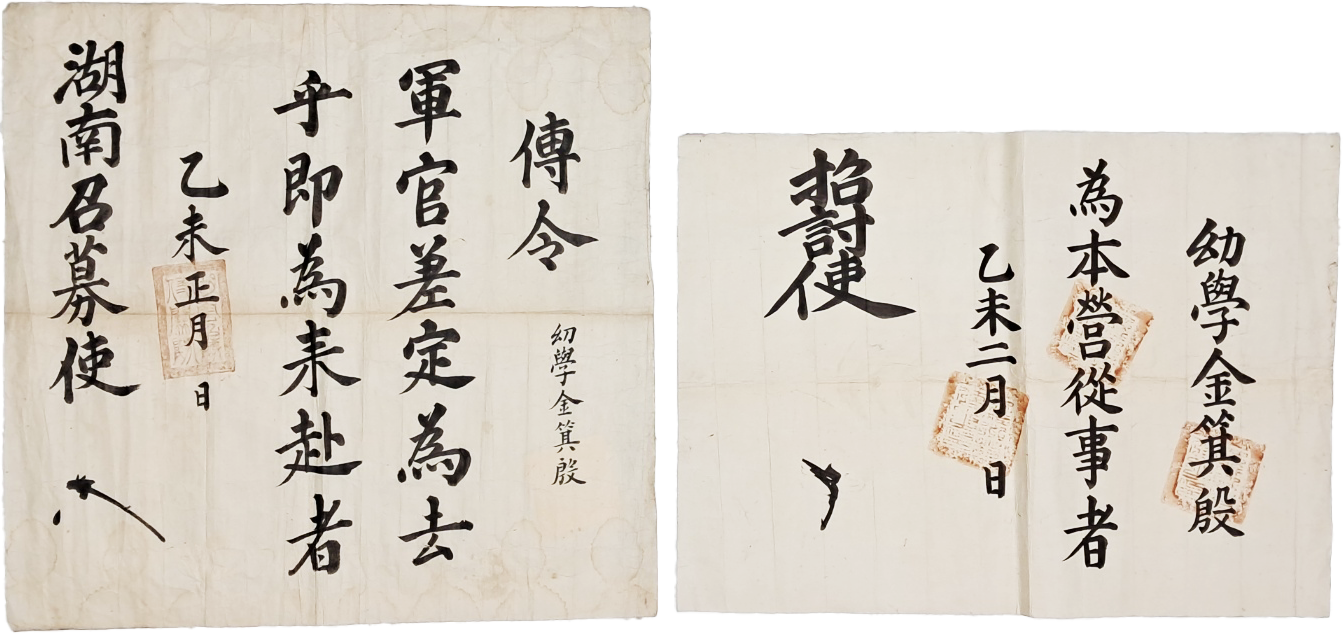 傳令
幼學金箕殷
軍官差定為去
乎即為来赴者
乙未正月 日
湖南召募使
幼學金箕殷
為本營從事者
乙未二月 日
招討使